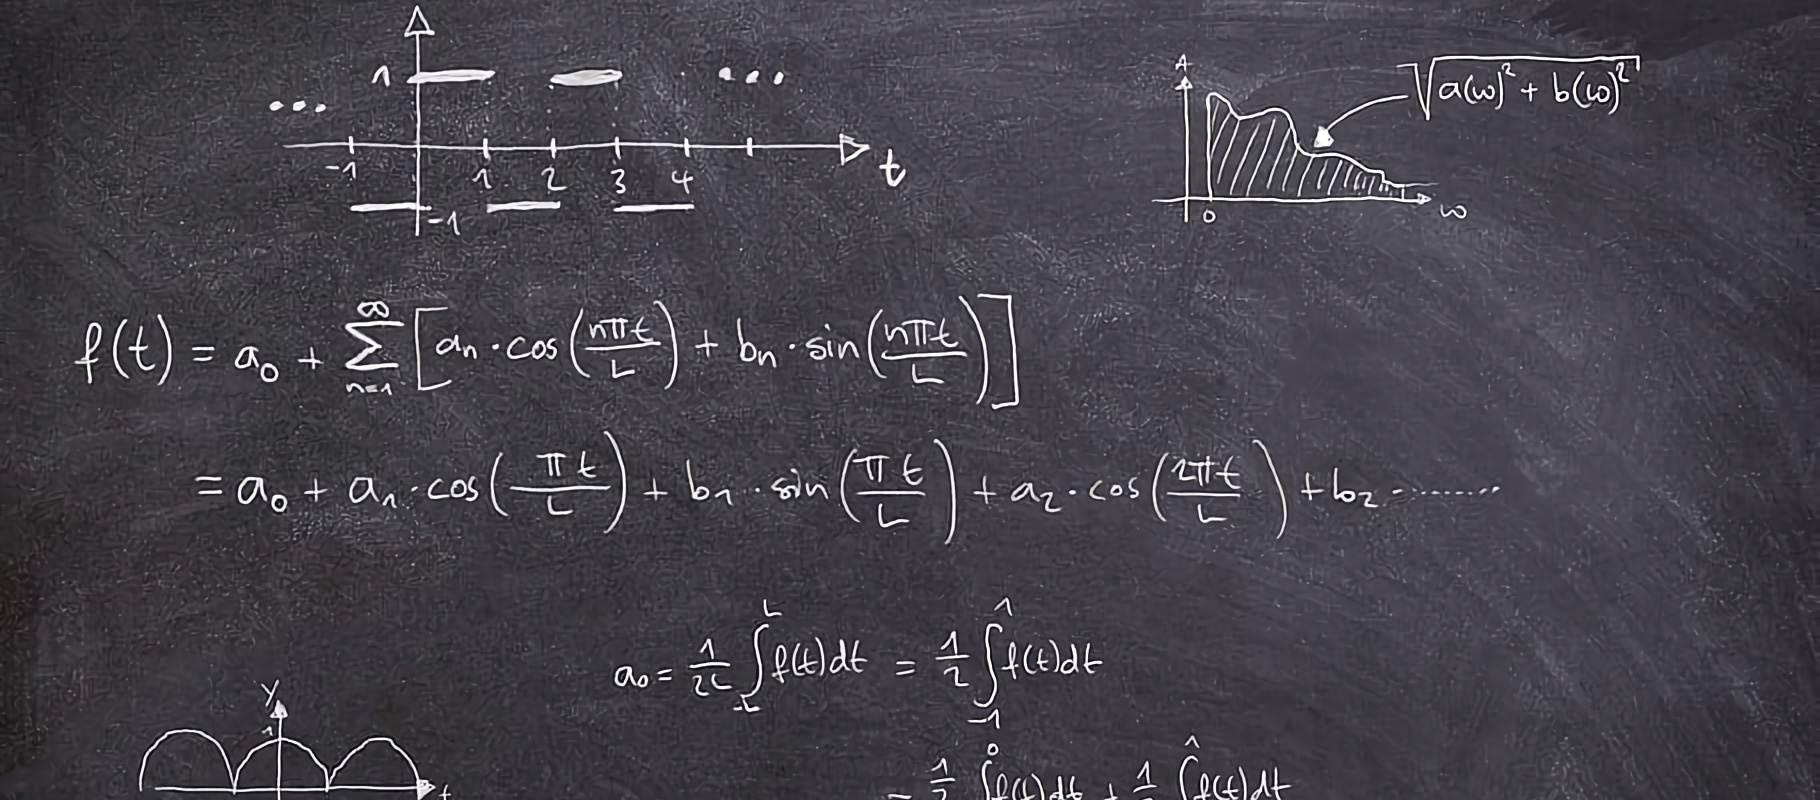 1
... ...
-1 1 2 3 4 t
-1
A
√(a(ω)² + b(ω)²)
0 ω
f(t) = a₀ + ∑_{n=1}^{∞} [aₙ · cos(nπt/L) + bₙ · sin(nπt/L)]
= a₀ + a₁ · cos(πt/L) + b₁ · sin(πt/L) + a₂ · cos(2πt/L) + b₂ · ........
a₀ = 1/2L ∫_{-L}^{L} f(t)dt = 1/2 ∫_{-1}^{1} f(t)dt
y
1
t
= 1/2 ∫^{0} f(t)dt + 1/2 ∫^{1} f(t)dt